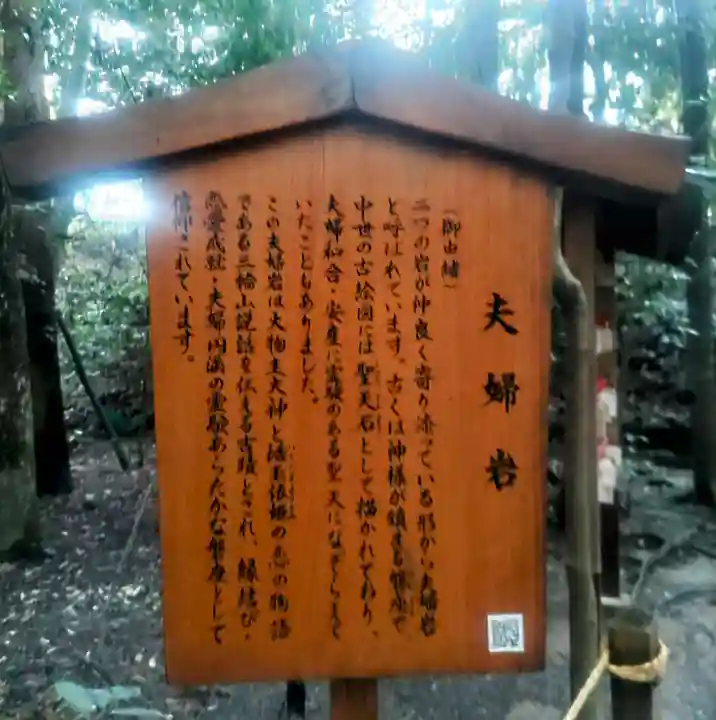 夫婦岩
(御由緒)
二つの岩が仲良く寄り添っている形から夫婦岩
と呼ばれています。古くは神様が鎮まる磐座で
中世の古絵図には聖天石として描かれており、
夫婦和合・安産に霊験のある聖天になぞらえて
いたこともありました。
この夫婦岩は大物主大神と活玉依姫の恋の物語
である三輪山説話を伝える古蹟とされ、縁結び・
恋愛成就・夫婦円満の霊験あらたかな磐座として
信仰されています。